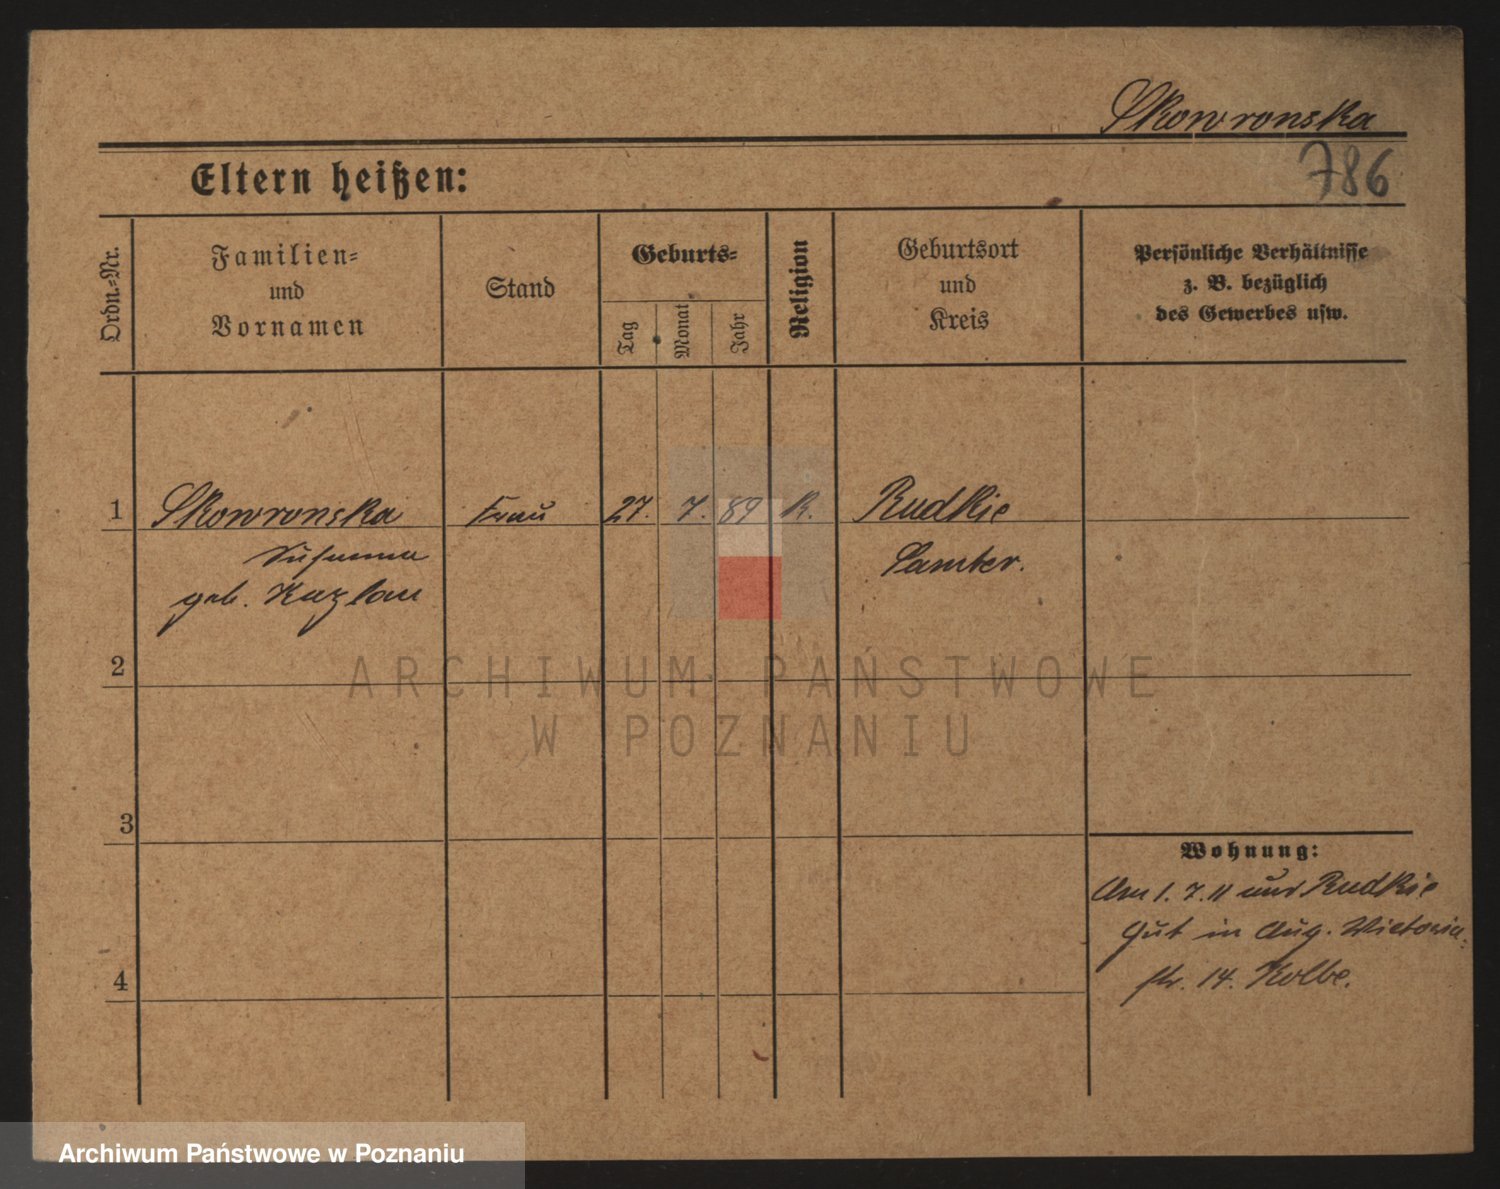 Skowronska
786
Eltern heißen:
Ordn.-Nr.
Familien-
und
Vornamen
Stand
Geburts-
Tag
Monat
Jahr
Religion
Geburtsort
und
Kreis
Persönliche Verhältnisse
z. B. bezüglich
des Gewerbes usw.
1 Skowronska Frau 27. 7. 89 K. Rudkie
Susanna Samter.
geb.
2
ARCHIWUM PAŃSTWOWE
W POZNANIU
3
Wohnung:
Am 1. 7. 11 aus Rudkie
Gut in Aug. Victoria-
str. 14. Kolbe.
4
Archiwum Państwowe w Poznaniu